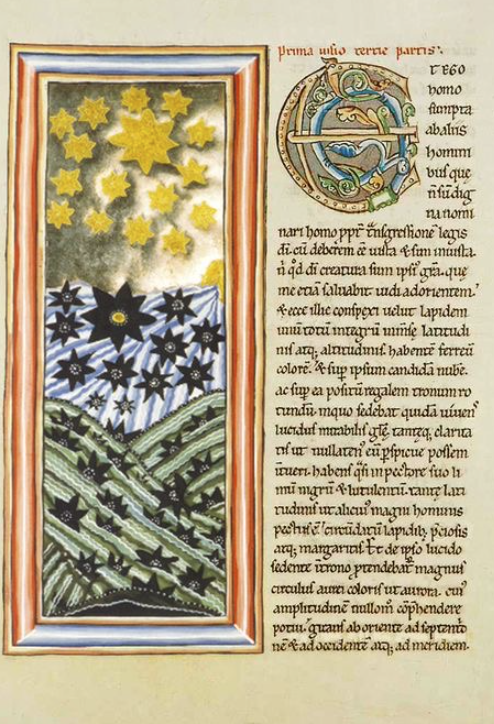 Prima uisio tercie partis.
ET EGO
homo
sumpta
ab aliis
homini
bus que
n̄ sū dig
na nomi
nari homo ppt̄ t̄nsgressionē legis
dī. cū deberem eē iusta & sum iniusta.
n̄ qd̓ dī creatura sum ipsi᷒ gr̄a. que
me etiā saluabit uidi ad orientem.
& ecce illic conspexi uelut lapidem
unū totū integrū inmēse latitudi
nis atq; altitudinis habentē ferreū
colorē. & sup̄ ipsum candidā nubē.
ac sup̄ ea positū regalem tronum ro
tundū in quo sedebat quidā uiuens
lucidus mirabilis gl̄e. tanteq; clarita
tis ut nullaten᷒ eū p̄spicue possem
intueri. habens q̄si in pectore suo li
mū nigrū & lutulentū tante lati
tudinis ut alicui᷒ magni hominis
pectus ē. circūdatū lapidib; p̄ciosis
atq; margaritis. Et de ipso lucido
sedente ī trono p̄tendebat᷑ magnus
circulus aurei coloris ut aurora. cui᷒
amplitudinē nullom̄ cōp̄hendere
potui. girans ab oriente ad septentrio
nē & ad occidentē atq; ad meridiem.